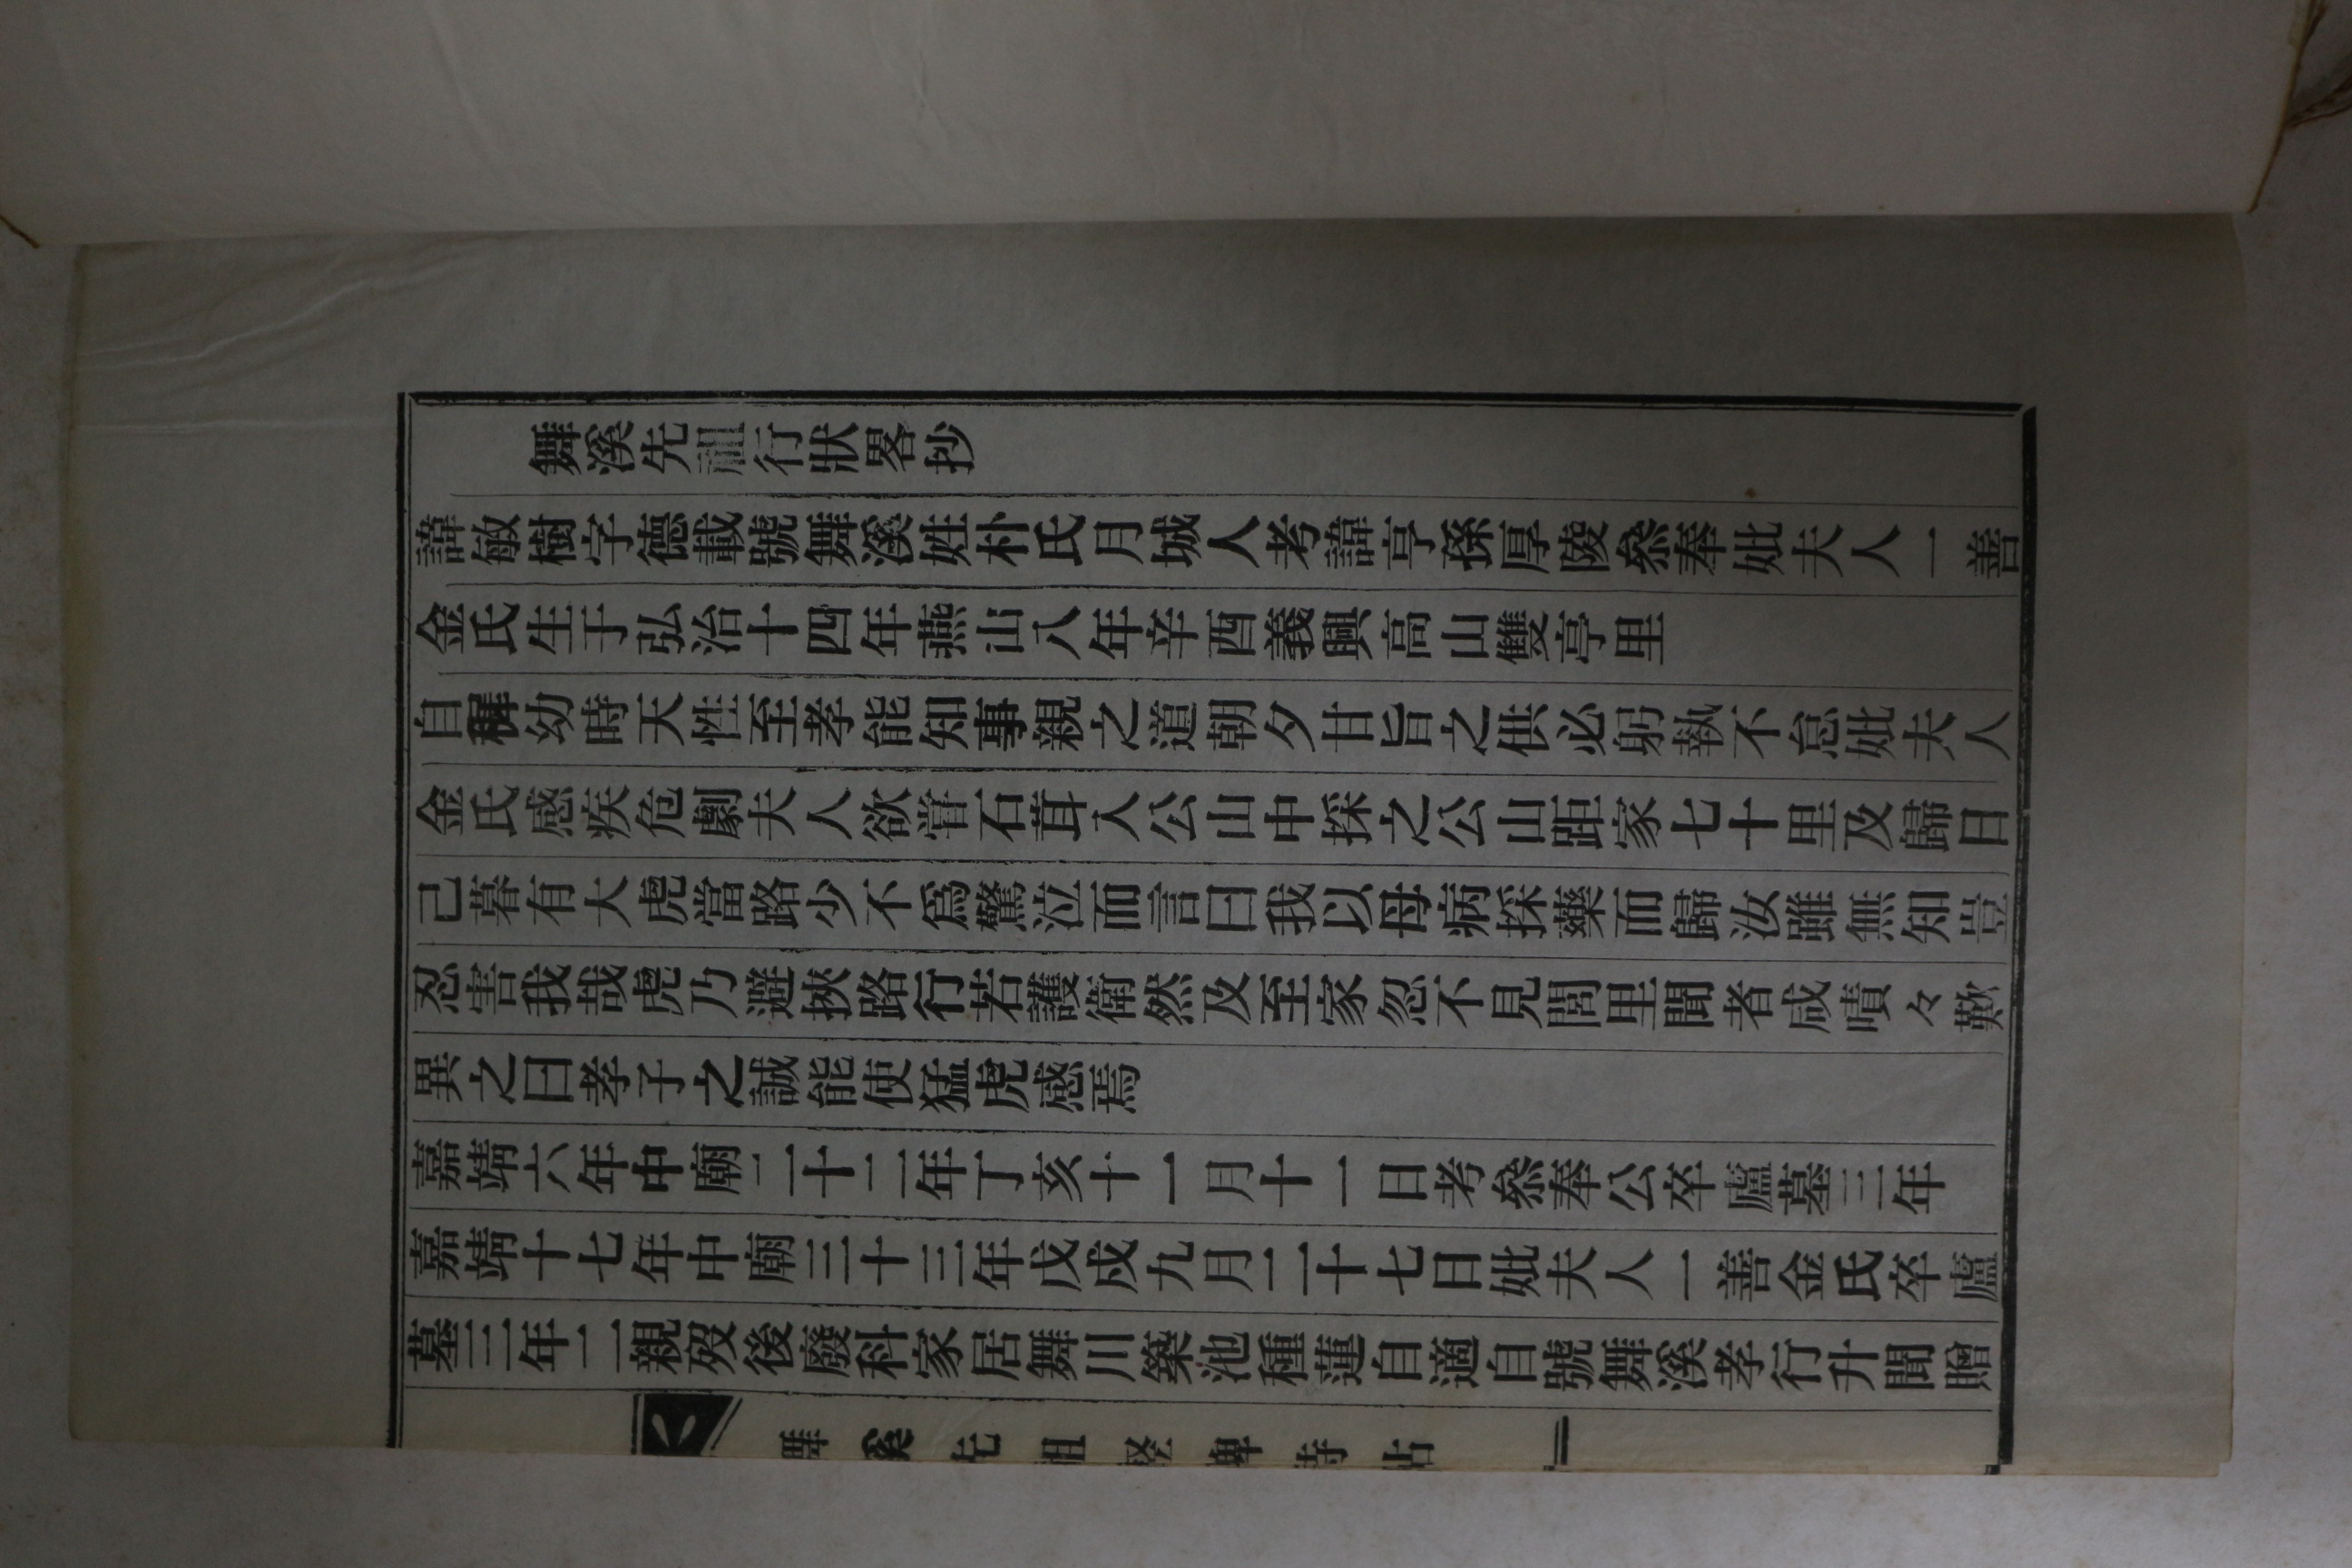 舞溪先祖行狀畧抄
諱敏樹字德載號舞溪姓朴氏月城人考諱亨孫厚陵叅奉妣夫人一善
金氏生于弘治十四年燕山八年辛酉義興高山雙亭里
自穉幼時天性至孝能知事親之道朝夕甘旨之供必躬執不怠妣夫人
金氏感疾危劇夫人欲嘗石茸入公山中採之公山距家七十里及歸日
已暮有大虎當路少不爲驚泣而言曰我以母病採藥而歸汝雖無知豈
忍害我哉虎乃避挾路行若護衛然及至家忽不見閭里聞者咸嘖々歎
異之曰孝子之誠能使猛虎感焉
嘉靖六年中廟二十二年丁亥十一月十一日考叅奉公卒廬墓三年
嘉靖十七年中廟三十三年戊戌九月二十七日妣夫人一善金氏卒廬
墓三年二親歿後廢科家居舞川築池種蓮自適自號舞溪孝行升聞贈
舞溪先祖竪碑時帖